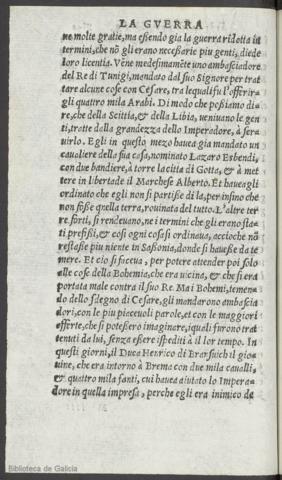 LA GVERRA
ue molte gratie, ma essendo gia la guerra ridotta in
termini, che nō gli erano necessarie piu genti, diede
loro licentia. Vēne medesimamēte uno ambasciadore
del Re di Tunigi, mandato dal suo Signore per trat
tare alcune cose con Cesare, tra le quali fu l'offerir=
gli quattro mila Arabi. Di modo che possiamo di=
re, che della Scittia, & della Libia, ueniuano le gen
ti, tratte dalla grandezza dello Imperadore, à ser=
uirlo. Egli in questo mezo haueua gia mandato un
caualiere della sua casa, nominato Lazaro Esbendi,
con due bandiere, à torre la citta di Gotta, & à met
tere in libertade il Marchese Alberto. Et haueagli
ordinato che egli non si partisse di la, per infino che
non fosse quella terra, rouinata del tutto. L'altre ter
re forti, si rendeuano, ne i termini che gli erano sta=
ti prefissi, & cosi ogni cosa si ordinaua, accioche nō
restasse piu niente in Sassonia, donde si hauesse da te
mere. Et cio si faceua, per potere attender poi solo
alle cose della Bohemia, che era uicina, & che si era
portata male contra il suo Re. Ma i Bohemi, temen=
do dello sdegno di Cesare, gli mandarono ambascia
dori, con le piu piaceuoli parole, et con le maggiori
offerte, che si potessero imaginare, iquali furono trat
tenuti da lui, senza essere ispediti à il lor tempo. In
questi giorni, il Duca Henrico di Bransuich il gio=
uine, che era intorno à Brema con due mila caualli,
& quattro mila fanti, cui haueua aiutato lo Impera=
dore in quella impresa, perche egli era inimico de
Biblioteca de Galicia